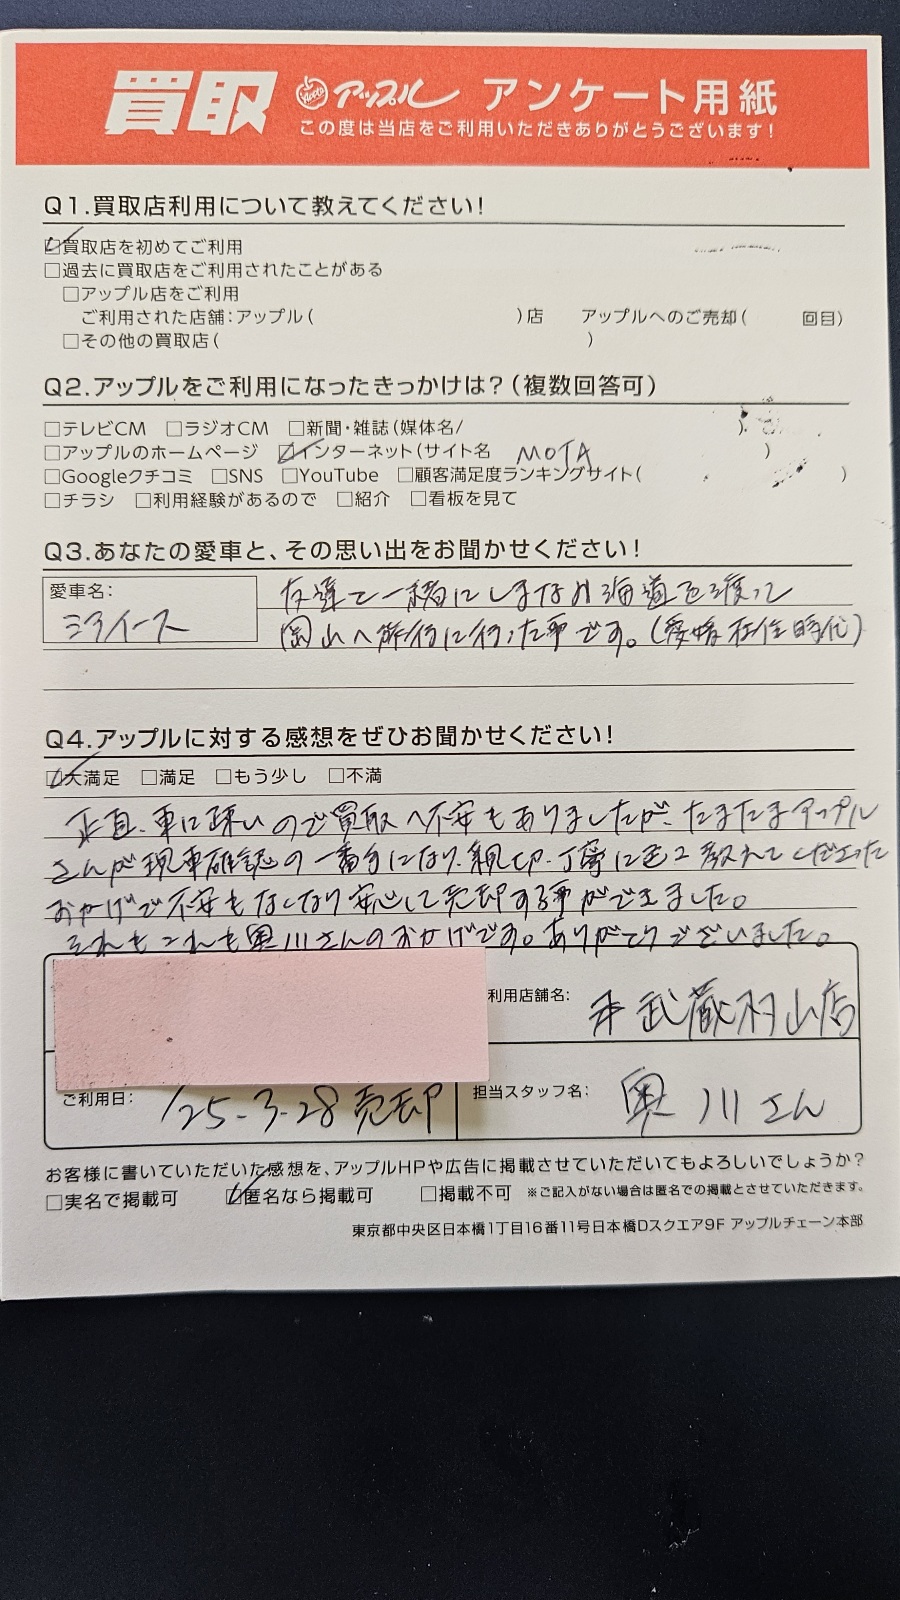 買取 Apple アップル アンケート用紙
この度は当店をご利用いただきありがとうございます!
Q1.買取店利用について教えてください!
☑買取店を初めてご利用
□過去に買取店をご利用されたことがある
□アップル店をご利用
ご利用された店舗:アップル( )店 アップルへのご売却( 回目)
□その他の買取店( )
Q2.アップルをご利用になったきっかけは?(複数回答可)
□テレビCM □ラジオCM □新聞・雑誌(媒体名/ )
□アップルのホームページ ☑インターネット(サイト名 MOTA )
□Googleクチコミ □SNS □YouTube □顧客満足度ランキングサイト( )
□チラシ □利用経験があるので □紹介 □看板を見て
Q3.あなたの愛車と、その思い出をお聞かせください!
愛車名:
ミライース
友達と一緒にしまなみ海道を渡って
岡山へ旅行に行った事です。(愛媛在住時代)
Q4.アップルに対する感想をぜひお聞かせください!
☑大満足 □満足 □もう少し □不満
正直、車に疎いので買取へ不安もありましたが、たまたまアップル
さんが現車確認の一番手になり、親切、丁寧に色々教えてくださった
おかげで不安もなくなり安心して売却する事ができました。
それもこれも奥川さんのおかげです。ありがとうございました。
利用店舗名: 武蔵村山店
ご利用日: '25-3-28売却
担当スタッフ名: 奥川さん
お客様に書いていただいた感想を、アップルHPや広告に掲載させていただいてもよろしいでしょうか?
□実名で掲載可 ☑匿名なら掲載可 □掲載不可 ※ご記入がない場合は匿名での掲載とさせていただきます。
東京都中央区日本橋1丁目16番11号日本橋Dスクエア9F アップルチェーン本部